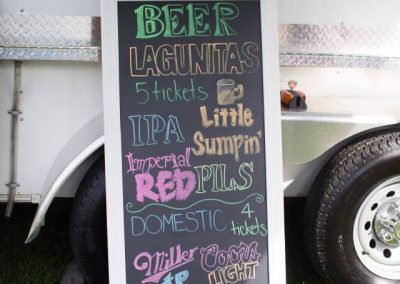 BEER
LAGUNITAS
5 tickets
IPA
Little
Sumpin'
Imperial
RED
PILS
DOMESTIC
4
tickets
Miller
Coors
LIGHT